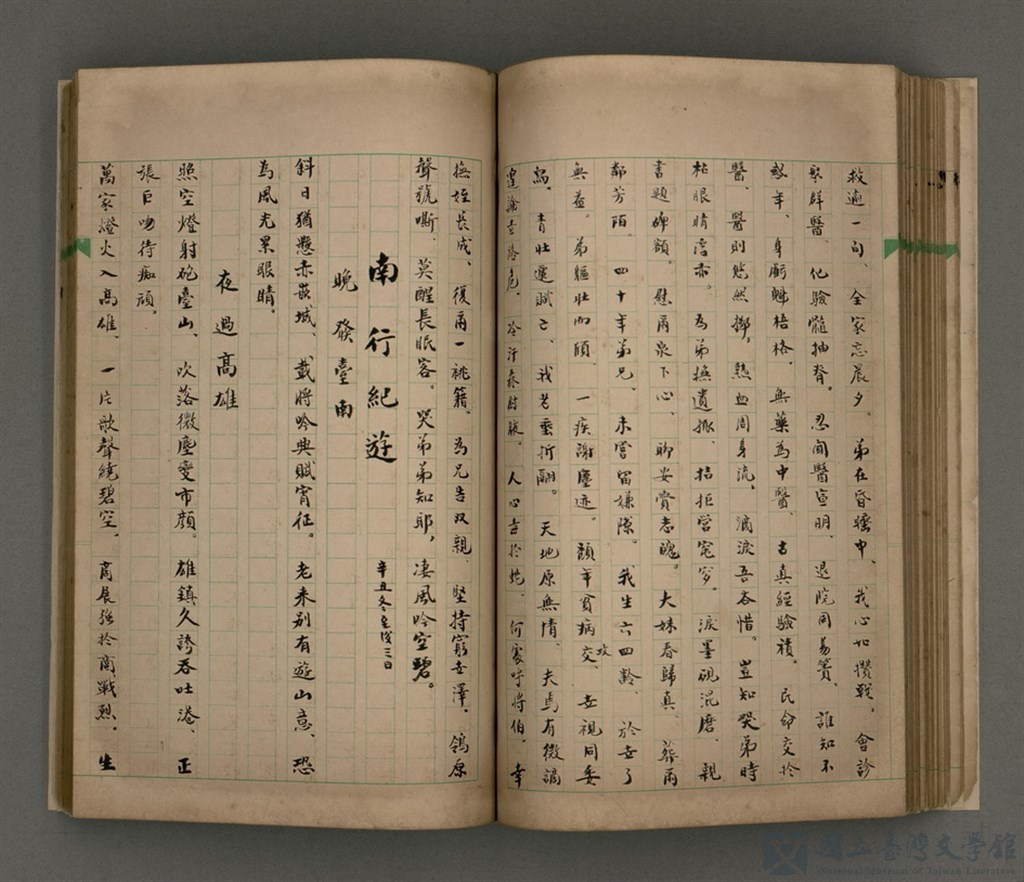 救逾一旬、全家忘晨夕。弟在昏睡中、我心如攢戟。會診
聚群醫、化驗髓抽脊。忍聞醫宣明、退院同易簀、誰知不
終年、身軀魁梧格。無藥為中醫、古真經驗積。民命交於
醫、醫則慾然擲。熱血周身流、滴淚吾吞惜。豈知哭弟時
枯眼睛浮赤。為弟撫遺孤、拮拒營窀穸。淚墨硯混磨、親
書題碑額。慰爾泉下心、聊安賞志魄。大妹春歸真、葬爾
鄰芳陌。四十年弟兄、未嘗留嫌隙。我生六四齡、於世了
無益。弟軀壯而頎、一疾謝塵迹。頻年貧病交攻、世視同委
舄。青壯遽賦亡、我老垂折翮。天地原無情、夫焉有微謫
冷汗 人心 何處呼將伯。幸
撫姪長成、復爾一祧籍。為兄告双親、堅持窮世澤。鴒原
聲號嘶、莫醒長眠客。哭弟弟知耶、凄風吟空碧。
南行紀遊 辛丑冬至後三日
晚發臺南
斜日猶懸赤嵌城、載將吟興賦宵征。老来别有遊山意、恐
為風光累眼睛。
夜過高雄
照空燈射砲臺山、吹落微塵变市顏。雄鎮久誇吞吐港、正
張巨吻待痴頑。
萬家燈火入高雄、一片歌聲繞碧空。商展強於商戰烈、生
國立臺灣文學館
National Museum of Taiwan Literature